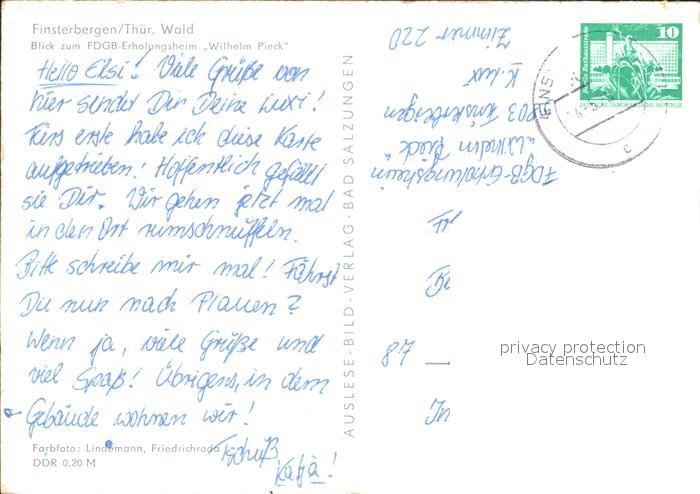 Finsterbergen/Thür. Wald
Blick zum FDGB-Erholungsheim „Wilhelm Pieck"
Hello Elsi! Viele Grüße von
hier sendet Dir Deine Luxi!
Fürs erste habe ich diese Karte
aufgetrieben! Hoffentlich gefällt
sie Dir. Wir gehen jetzt mal
in den Ort rumschnüffeln.
Bitte schreibe mir mal! Fährst
Du nun nach Plauen?
Wenn ja, viele Grüße und
viel Spaß! Übrigens, in dem
Gebäude wohnen wir!
Tschüß
Katja!
Farbfoto: Lindemann, Friedrichroda
DDR 0,20 M
AUSLESE-BILD-VERLAG · BAD SALZUNGEN
K. Lux
FDGB-Erholungsheim
„Wilhelm Pieck"
5803 Finsterbergen
Zimmer 220
10
DEUTSCHE DEMOKRATISCHE REPUBLIK
FINS
c
Fr
Be
87
In
privacy protection
Datenschutz